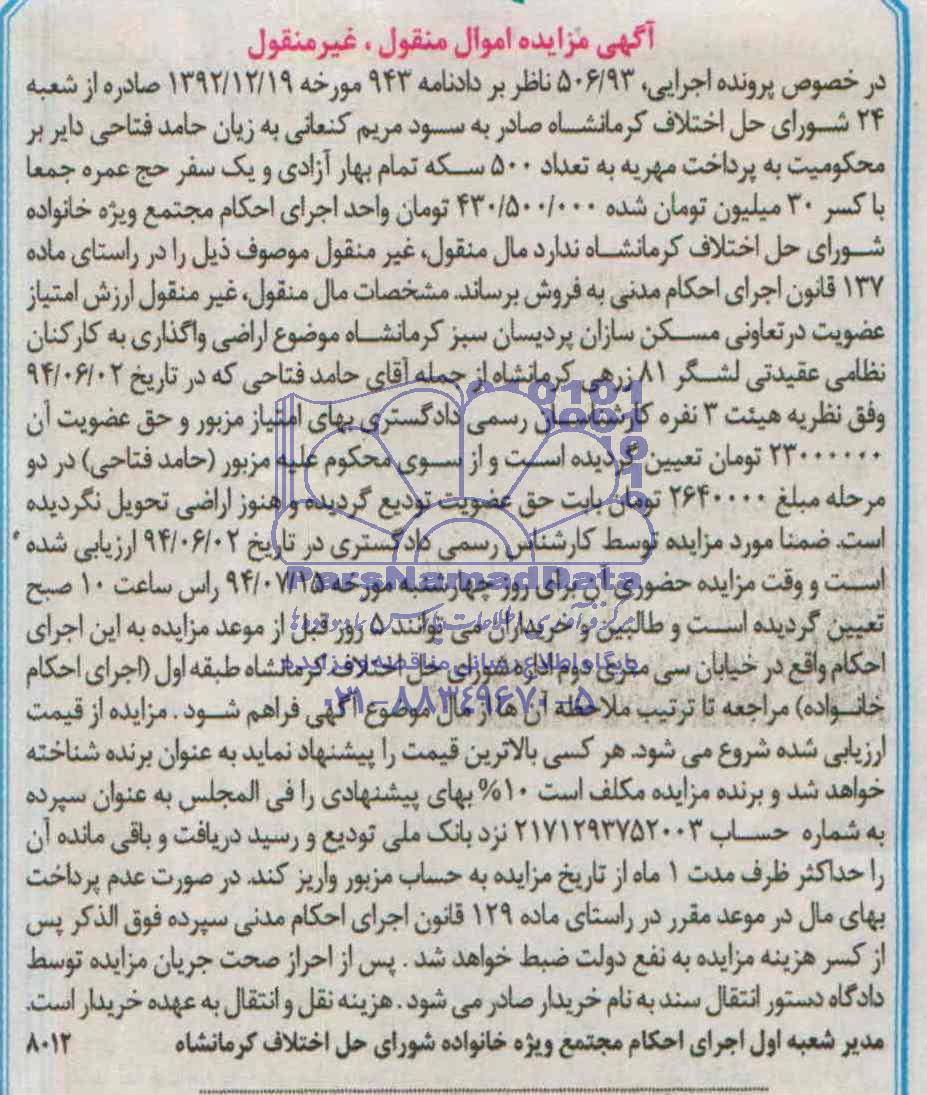 آگهی مزایده اموال منقول ، غیرمنقول
در خصوص پرونده اجرایی، ۵۰۶/۹۳ ناظر بر دادنامه ۹۴۳ مورخه ۱۳۹۲/۱۲/۱۹ صادره از شعبه
۲۴ شورای حل اختلاف کرمانشاه صادر به سود مریم کنعانی به زیان حامد فتاحی دایر بر
محکومیت به پرداخت مهریه به تعداد ۵۰۰ سکه تمام بهار آزادی و یک سفر حج عمره جمعا
با کسر ۳۰ میلیون تومان شده ۴۳۰/۵۰۰/۰۰۰ تومان واحد اجرای احکام مجتمع ویژه خانواده
شورای حل اختلاف کرمانشاه ندارد مال منقول، غیر منقول موصوف ذیل را در راستای ماده
۱۳۷ قانون اجرای احکام مدنی به فروش برساند. مشخصات مال منقول، غیر منقول ارزش امتیاز
عضویت در تعاونی مسکن سازان پردیسان سبز کرمانشاه موضوع اراضی واگذاری به کارکنان
نظامی عقیدتی لشگر ۸۱ زرهی کرمانشاه از جمله آقای حامد فتاحی که در تاریخ ۹۴/۰۶/۰۲
وفق نظریه هیئت ۳ نفره کارشناسان رسمی دادگستری بهای امتیاز مزبور و حق عضویت آن
۲۳۰۰۰۰۰۰ تومان تعیین گردیده است و از سوی محکوم علیه مزبور (حامد فتاحی) در دو
مرحله مبلغ ۲۶۴۰۰۰۰ تومان بابت حق عضویت تودیع گردیده و هنوز اراضی تحویل نگردیده
است. ضمنا مورد مزایده توسط کارشناس رسمی دادگستری در تاریخ ۹۴/۰۶/۰۲ ارزیابی شده
است و وقت مزایده حضوری آن برای روز چهارشنبه مورخه ۹۴/۰۷/۱۵ راس ساعت ۱۰ صبح
تعیین گردیده است و طالبین و خریداران می توانند ۵ روز قبل از موعد مزایده به این اجرای
احکام واقع در خیابان سی متری دوم اداره شورای حل اختلاف کرمانشاه طبقه اول (اجرای احکام
خانواده) مراجعه تا ترتیب ملاحظه آن ها از مال موضوع آگهی فراهم شود . مزایده از قیمت
ارزیابی شده شروع می شود. هر کسی بالاترین قیمت را پیشنهاد نماید به عنوان برنده شناخته
خواهد شد و برنده مزایده مکلف است ۱۰% بهای پیشنهادی را فی المجلس به عنوان سپرده
به شماره حساب ۲۱۷۱۲۹۳۷۵۲۰۰۳ نزد بانک ملی تودیع و رسید دریافت و باقی مانده آن
را حداکثر ظرف مدت ۱ ماه از تاریخ مزایده به حساب مزبور واریز کند. در صورت عدم پرداخت
بهای مال در موعد مقرر در راستای ماده ۱۲۹ قانون اجرای احکام مدنی سپرده فوق الذکر پس
از کسر هزینه مزایده به نفع دولت ضبط خواهد شد . پس از احراز صحت جریان مزایده توسط
دادگاه دستور انتقال سند به نام خریدار صادر می شود . هزینه نقل و انتقال به عهده خریدار است.
مدیر شعبه اول اجرای احکام مجتمع ویژه خانواده شورای حل اختلاف کرمانشاه ۸۰۱۲
ParsNamadData
پایگاه اطلاع رسانی مناقصه و مزایده
۰۲۱-۸۸۳۴۹۶۷۰-۵